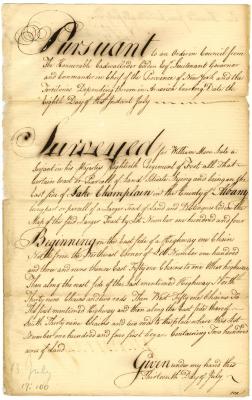 Pursuant to an Order in Council from
The Honorable Cadwallader Colden Esqr Lieutenant Governor
and Commander in Chief of the Province of New York and the
Territories Depending thereon in America bearing Date the
Eighth Day of this Instant July
Surveyed for William Moor late a
Serjant in his Majestys Regiment of foot all That
Certain tract or Parcell of Land Situate Lying and being on the
East side of Lake Champlain in the County of Albany
being part or parcell of a Larger Tract of Land and Distinguished in the
Map of the said Larger Tract by Lot Number one hundred and four
Beginning on the East side of a Highway one Chain
North from the Northeast Corner of Lot Number one hundred
and three and runs thence East fifty one Chains to One Other highway
Then along the west side of the last mentioned Highway North
Thirty nine Chains and two rods Then West Fifty one Chains to
the first mentioned highway and then along the East side thereof
South Thirty nine Chains and two rods to the place where this Lot
Number one hundred and four first began Containing Two hundred
acres of Land
Given under my hand this
Thirteenth Day of July
13 July